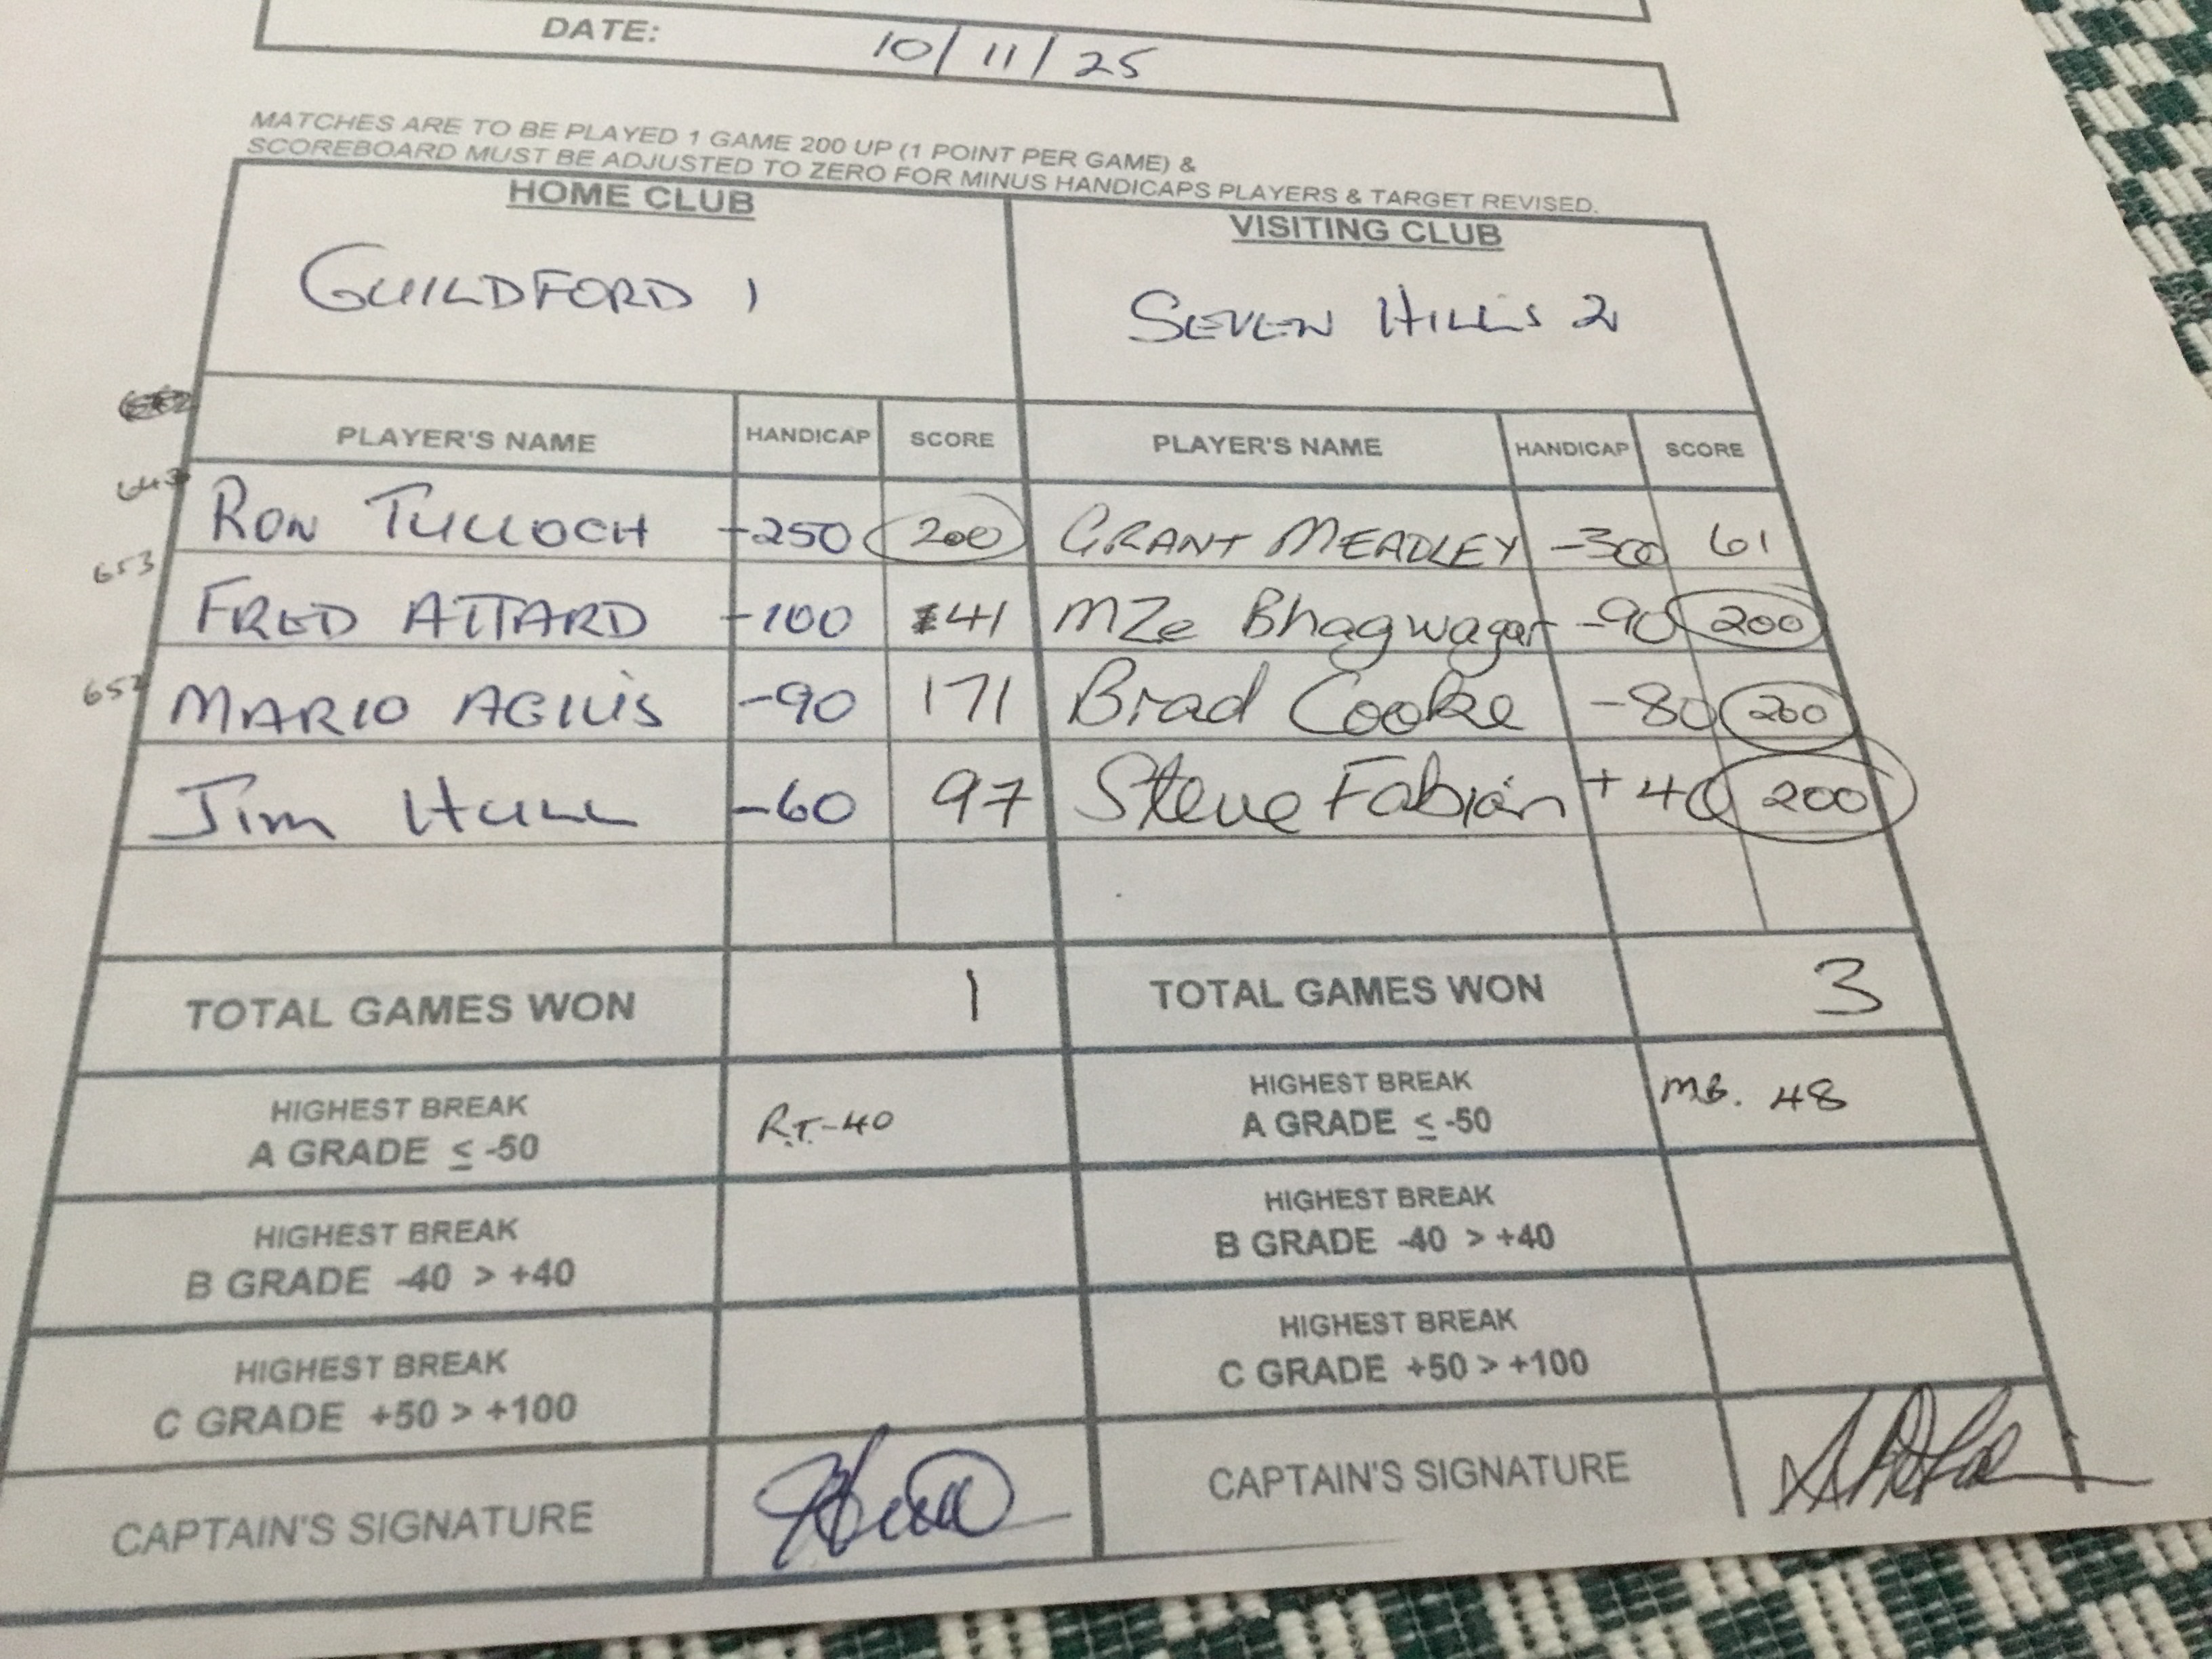 DATE: 10/11/25
MATCHES ARE TO BE PLAYED 1 GAME 200 UP (1 POINT PER GAME) &
SCOREBOARD MUST BE ADJUSTED TO ZERO FOR MINUS HANDICAPS PLAYERS & TARGET REVISED.
HOME CLUB VISITING CLUB
GUILDFORD 1 SEVEN HILLS 2
PLAYER'S NAME HANDICAP SCORE PLAYER'S NAME HANDICAP SCORE
643 RON TULLOCH -250 200 GRANT MEADLEY -300 61
653 FRED ATTARD -100 41 MZe Bhagwagar -90 200
652 MARIO AGIUS -90 171 Brad Cooke -80 200
Jim HULL -60 97 Steve Fabian +40 200
TOTAL GAMES WON 1 TOTAL GAMES WON 3
HIGHEST BREAK
A GRADE ≤ -50 R.T.-40 HIGHEST BREAK
A GRADE ≤ -50 MB. 48
HIGHEST BREAK
B GRADE -40 > +40 HIGHEST BREAK
B GRADE -40 > +40
HIGHEST BREAK
C GRADE +50 > +100 HIGHEST BREAK
C GRADE +50 > +100
CAPTAIN'S SIGNATURE CAPTAIN'S SIGNATURE